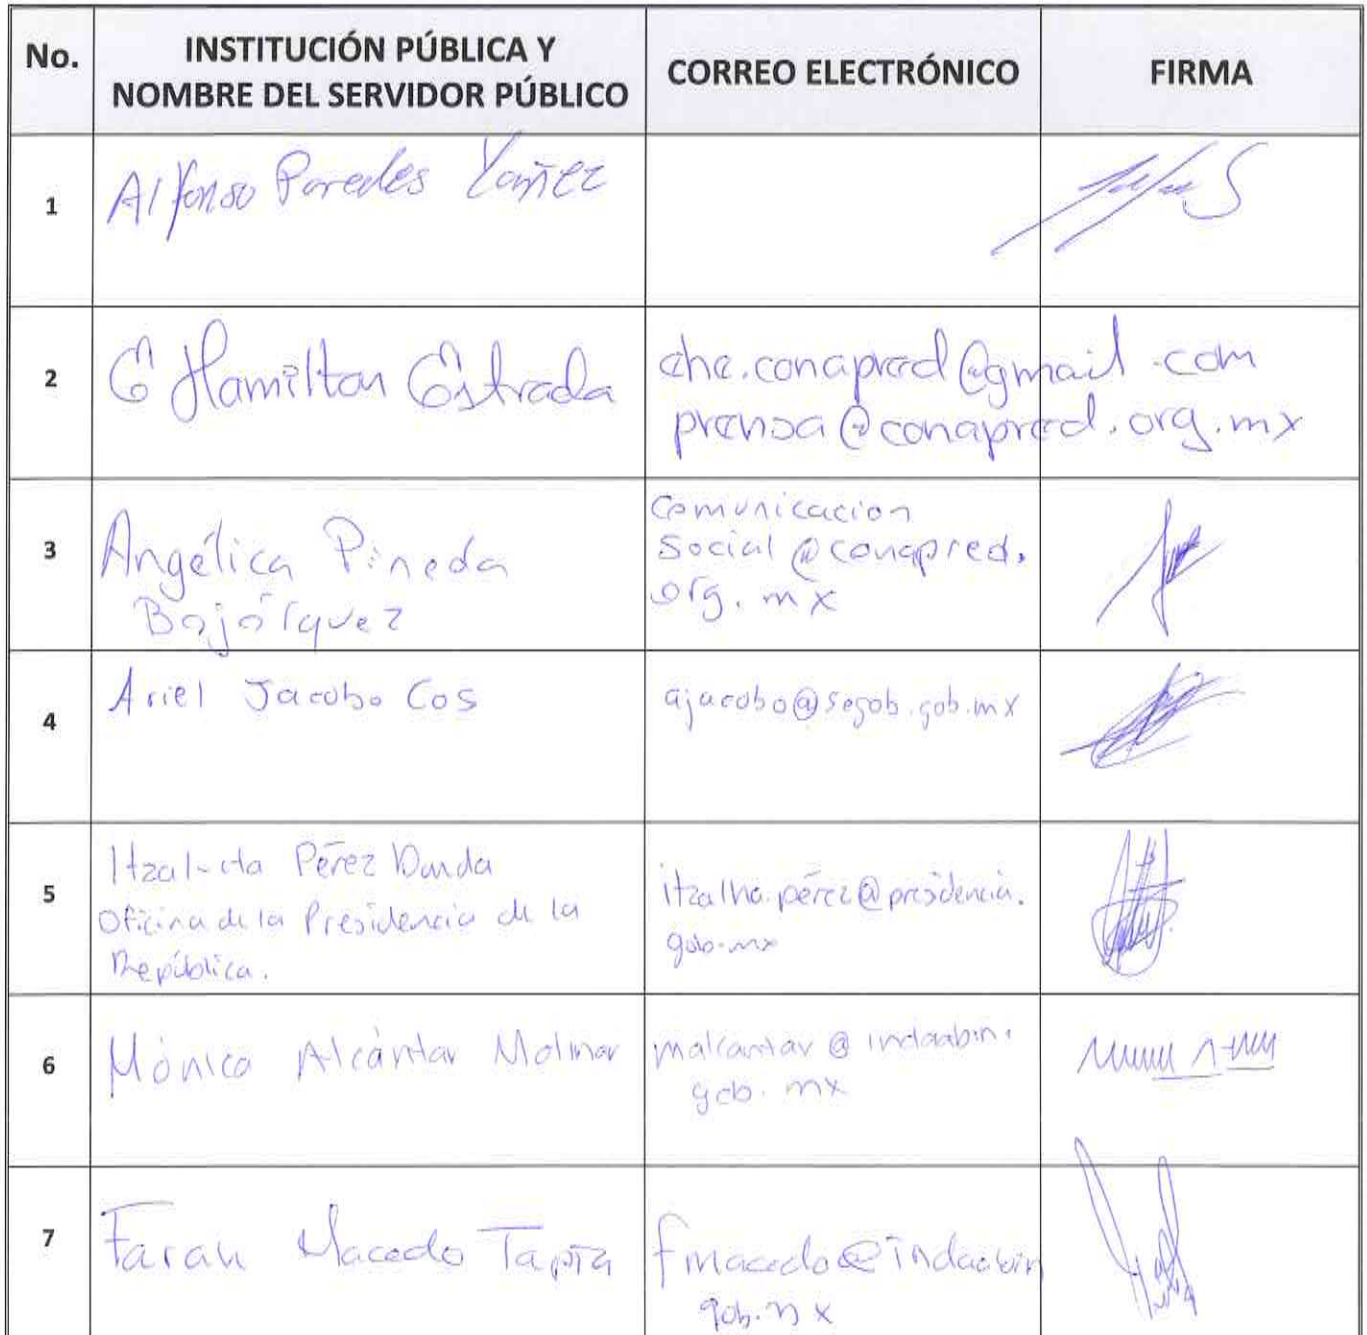 No.
INSTITUCIÓN PÚBLICA Y
NOMBRE DEL SERVIDOR PÚBLICO
CORREO ELECTRÓNICO
FIRMA
1
Alfonso Paredes Yañez
2
C Hamilton Estrada
che.conapred@gmail.com
prensa@conapred.org.mx
3
Angélica Pineda
Bojórquez
Comunicacion
Social@conapred.
org.mx
4
Ariel Jacobo Cos
ajacobo@segob.gob.mx
5
Pérez
Oficina de la Presidencia de la
República.
itzalha.pérez@presidencia.
gob.mx
6
Mónica Alcántar Molinar
malcantar@indaabin.
gob.mx
7
Farah Macedo Tapia
fmacedo@indaabin
gob.mx